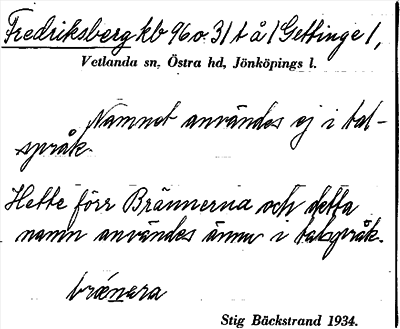 Fredriksberg kb 96 o. 31 t å 1 Gettinge 1,
Vetlanda sn, Östra hd, Jönköpings l.
Namnet användes ej i tal-
språk.
Hette förr Brännerna och detta
namn användes ännu i talspråk.
brænera
Stig Bäckstrand 1934.